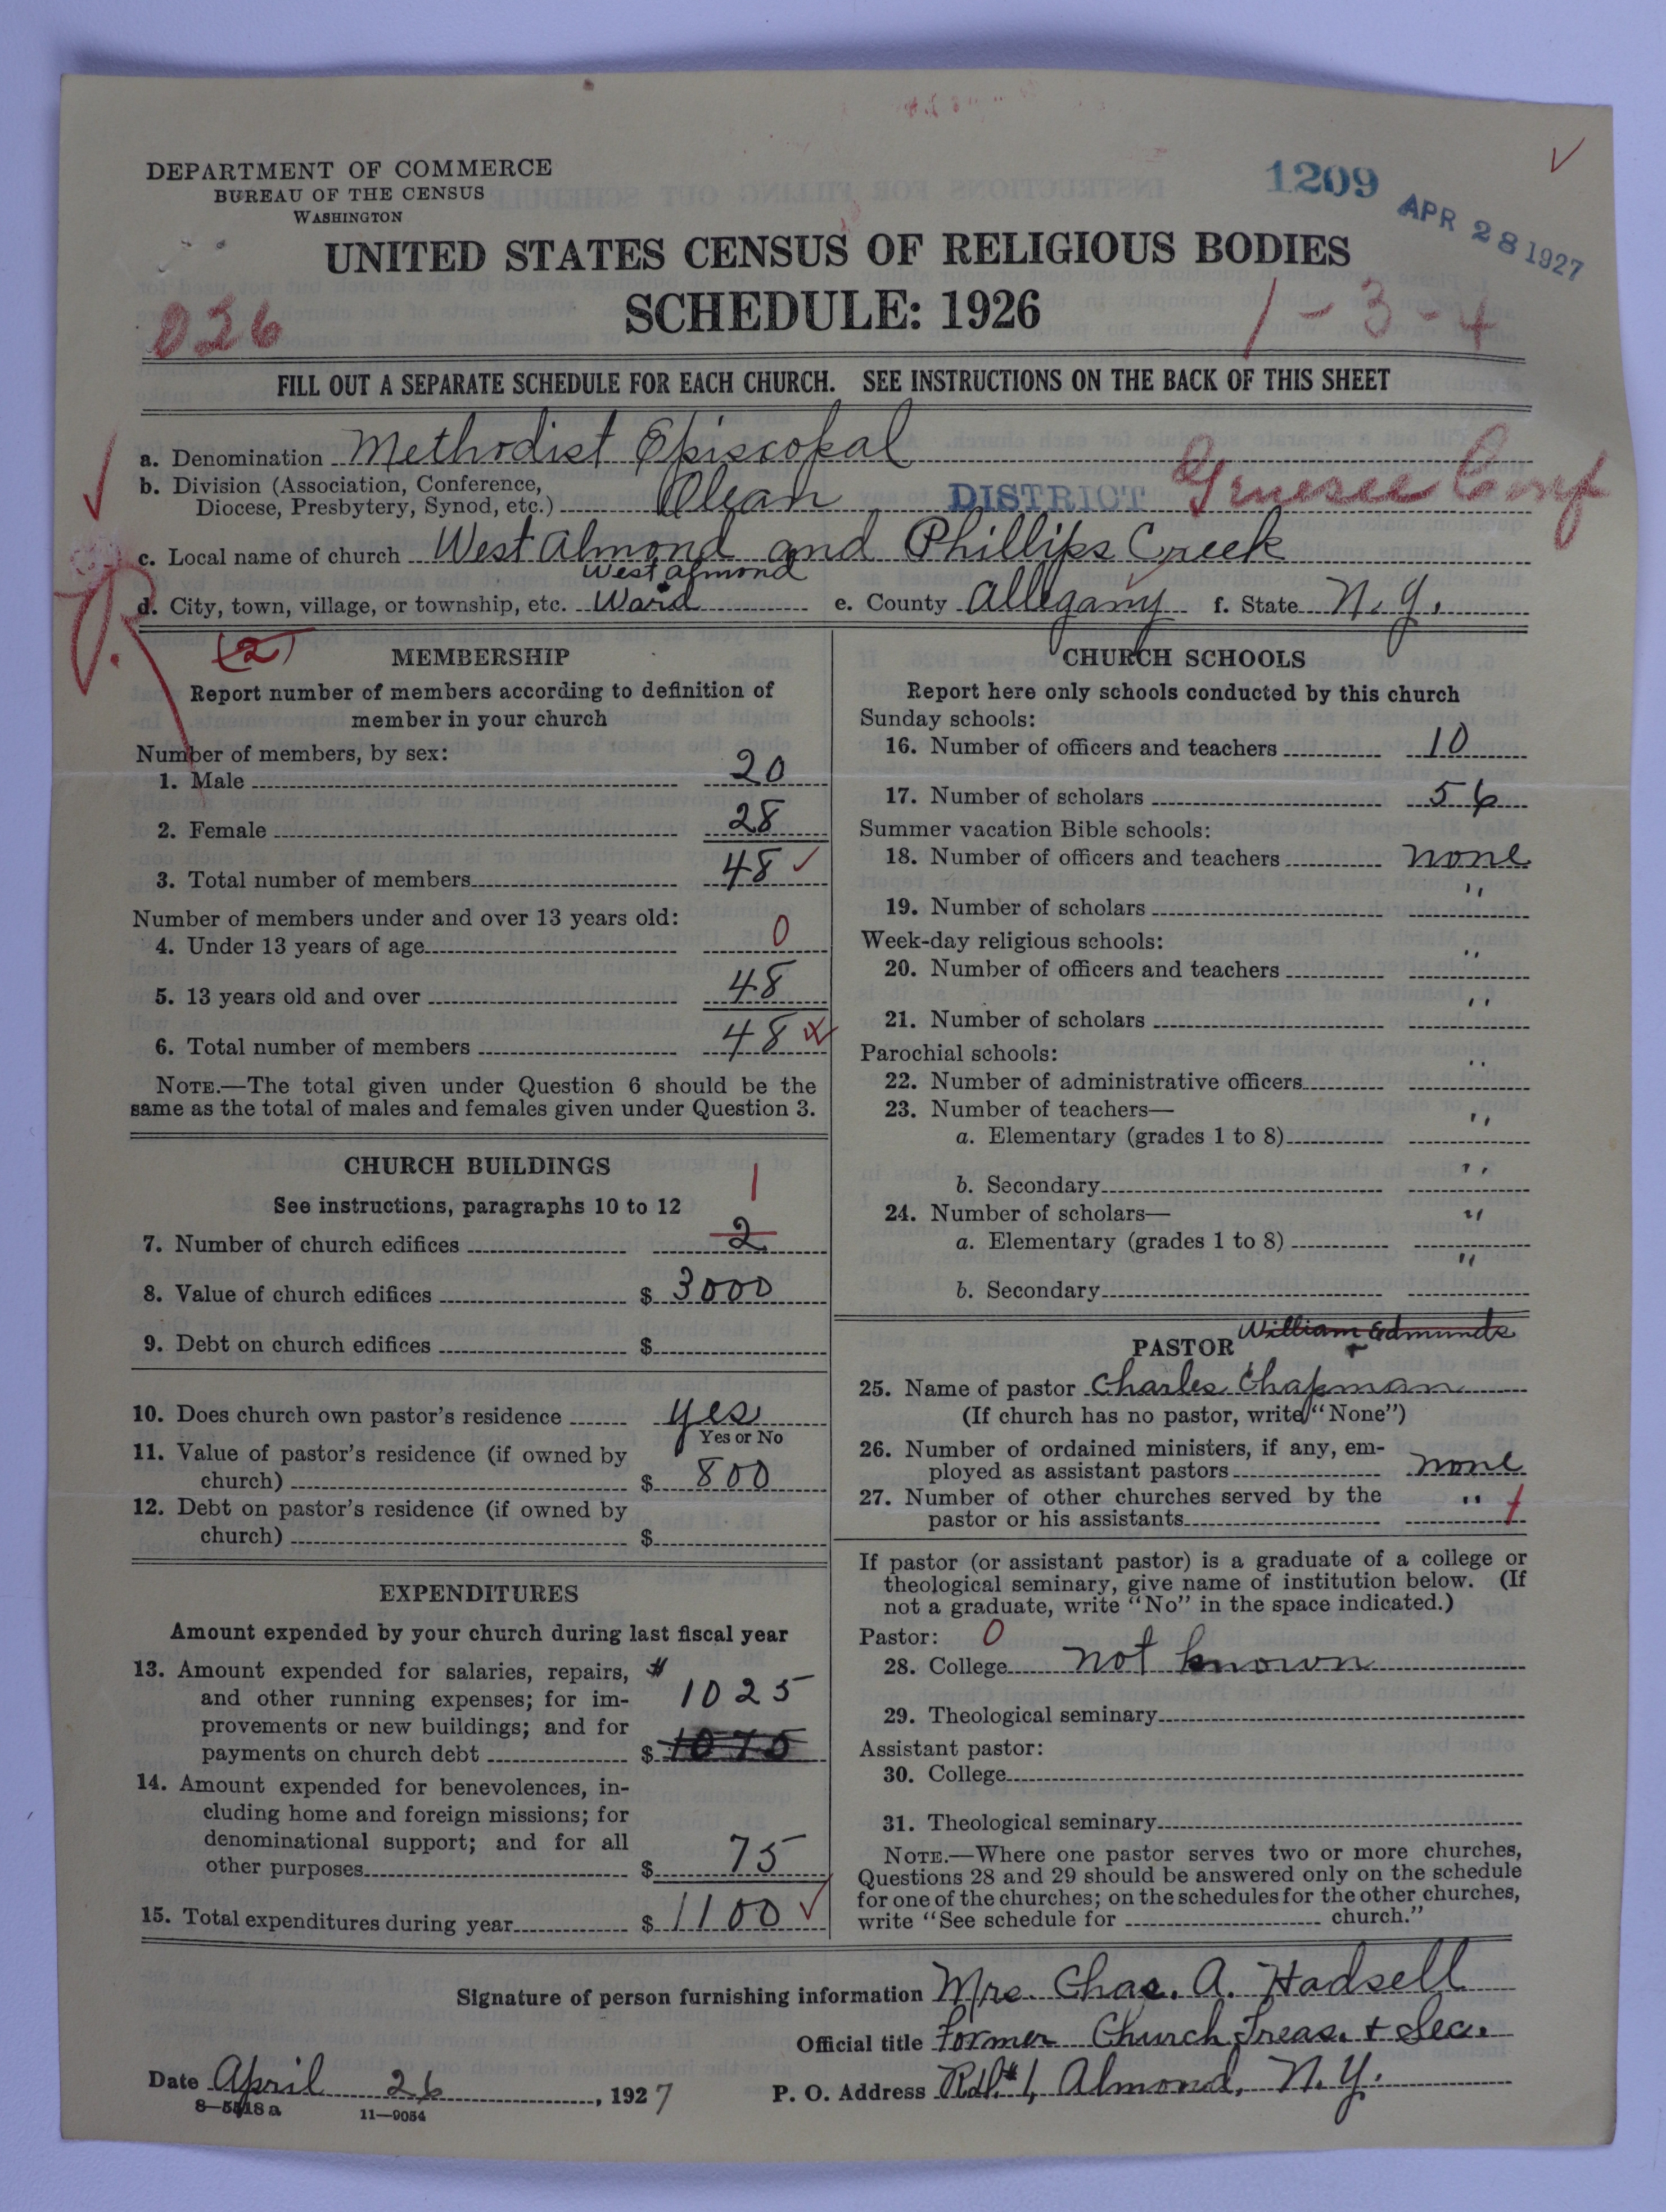 1209
APR 28 1927
DEPARTMENT OF COMMERCE
BUREAU OF THE CENSUS
WASHINGTON
UNITED STATES CENSUS OF RELIGIOUS BODIES
SCHEDULE: 1926
036
1-3-4
FILL OUT A SEPARATE SCHEDULE FOR EACH CHURCH. SEE INSTRUCTIONS ON THE BACK OF THIS SHEET
a. Denomination Methodist Episcopal
b. Division (Association, Conference,
Diocese, Presbytery, Synod, etc.) Olean DISTRICT Genesee Conf
c. Local name of church West Almond and Phillips Creek
West Almond
d. City, town, village, or township, etc. Ward e. County Allegany f. State N.Y.
(2)
MEMBERSHIP
Report number of members according to definition of
member in your church
Number of members, by sex:
1. Male 20
2. Female 28
3. Total number of members 48 ✓
Number of members under and over 13 years old:
4. Under 13 years of age 0
5. 13 years old and over 48
6. Total number of members 48
NOTE.—The total given under Question 6 should be the
same as the total of males and females given under Question 3.
CHURCH BUILDINGS
See instructions, paragraphs 10 to 12
1
7. Number of church edifices 2
8. Value of church edifices $ 3000
9. Debt on church edifices $
10. Does church own pastor's residence yes
Yes or No
11. Value of pastor's residence (if owned by
church) $ 800
12. Debt on pastor's residence (if owned by
church) $
EXPENDITURES
Amount expended by your church during last fiscal year
13. Amount expended for salaries, repairs, #
and other running expenses; for im- 1025
provements or new buildings; and for
payments on church debt $ 1075
14. Amount expended for benevolences, in-
cluding home and foreign missions; for
denominational support; and for all
other purposes $ 75
15. Total expenditures during year $ 1100 ✓
CHURCH SCHOOLS
Report here only schools conducted by this church
Sunday schools:
16. Number of officers and teachers 10
17. Number of scholars 56
Summer vacation Bible schools:
18. Number of officers and teachers none
19. Number of scholars "
Week-day religious schools:
20. Number of officers and teachers "
21. Number of scholars "
Parochial schools:
22. Number of administrative officers "
23. Number of teachers—
a. Elementary (grades 1 to 8) "
b. Secondary "
24. Number of scholars—
a. Elementary (grades 1 to 8) "
b. Secondary "
PASTOR William Edmunds
25. Name of pastor Charles Chapman
(If church has no pastor, write "None")
26. Number of ordained ministers, if any, em-
ployed as assistant pastors none
27. Number of other churches served by the
pastor or his assistants "
If pastor (or assistant pastor) is a graduate of a college or
theological seminary, give name of institution below. (If
not a graduate, write "No" in the space indicated.)
Pastor: 0
28. College not known
29. Theological seminary
Assistant pastor:
30. College
31. Theological seminary
NOTE.—Where one pastor serves two or more churches,
Questions 28 and 29 should be answered only on the schedule
for one of the churches; on the schedules for the other churches,
write "See schedule for church."
Signature of person furnishing information Mrs. Chas. A. Hadsell
Official title Former Church Treas. + Sec.
Date April 26, 1927 P. O. Address R.d. #1, Almond, N.Y.
8—5518a 11—9054